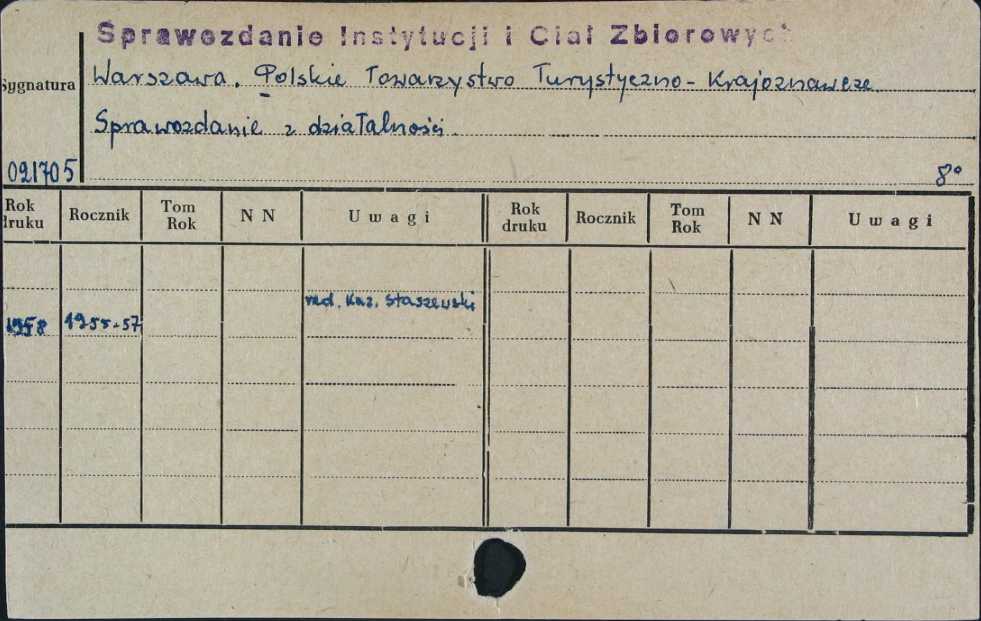 Sprawozdanie Instytucji i Ciał Zbiorowych
Sygnatura
Warszawa. Polskie Towarzystwo Turystyczno-Krajoznawcze.
Sprawozdanie z działalności.
021705
8°
Rok druku Rocznik Tom Rok N N Uwagi Rok druku Rocznik Tom Rok N N Uwagi
red. Kaz. Staszewski
1958 1955-57